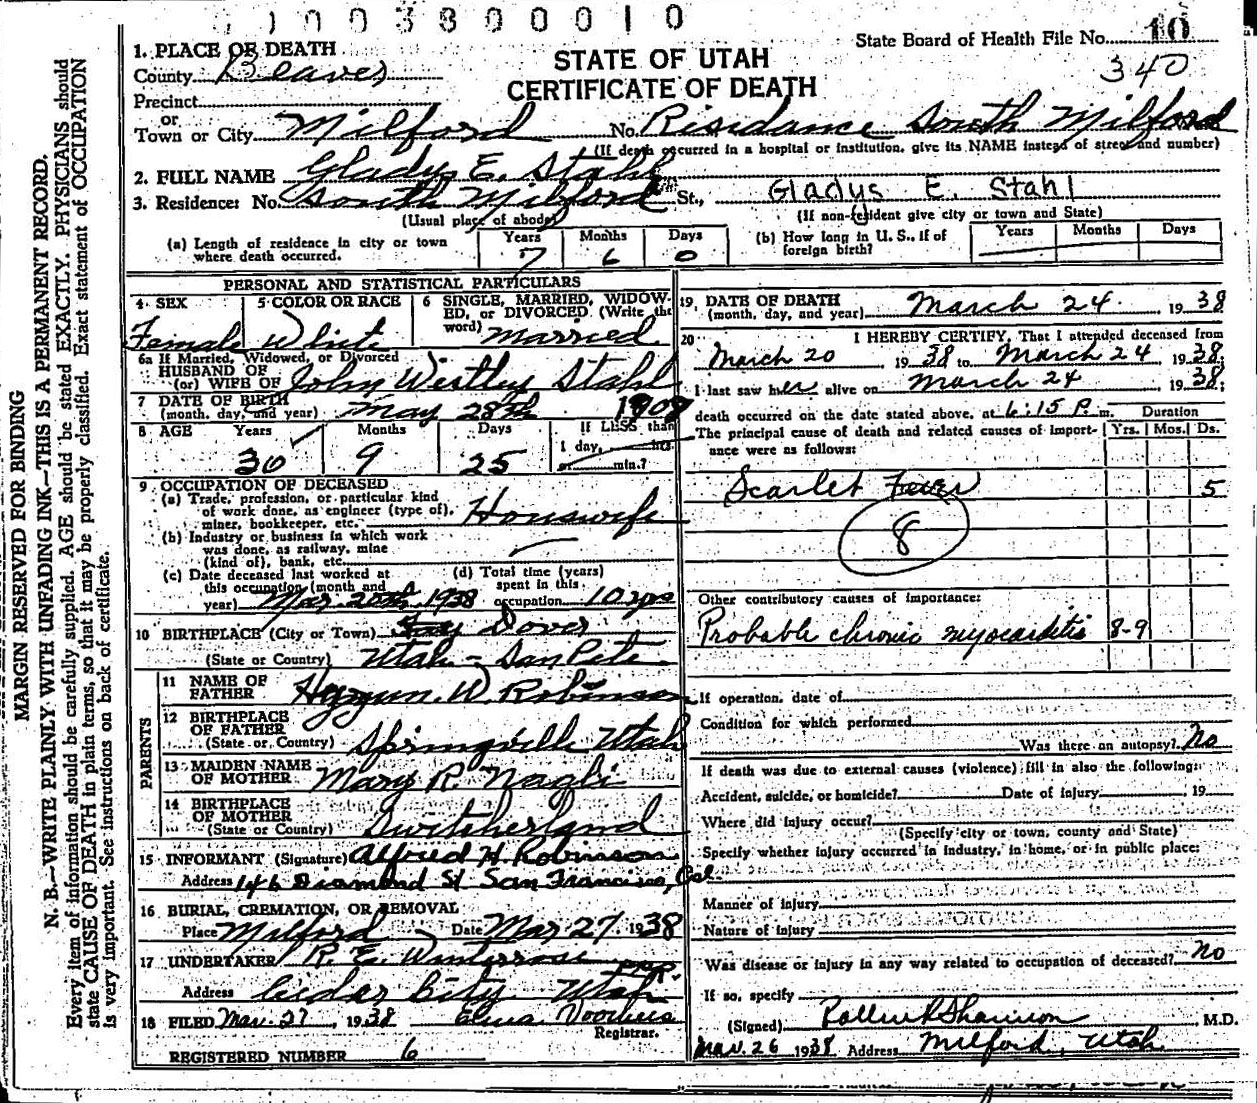 1003800010
State Board of Health File No. 10
340
STATE OF UTAH
CERTIFICATE OF DEATH
1. PLACE OF DEATH
County Beaver
Precinct
or
Town or City Milford No. Risidance South Milford
(If death occurred in a hospital or institution, give its NAME instead of street and number)
2. FULL NAME Gladys E. Stahl
3. Residence: No. South Milford St., Gladys E. Stahl
(Usual place of abode) (If non-resident give city or town and State)
(a) Length of residence in city or town where death occurred. Years 7 Months 6 Days 0
(b) How long in U. S., if of foreign birth? Years Months Days
PERSONAL AND STATISTICAL PARTICULARS
4 SEX Female
5 COLOR OR RACE White
6 SINGLE, MARRIED, WIDOWED, or DIVORCED (Write the word) Married
6a If Married, Widowed, or Divorced
HUSBAND OF
(or) WIFE OF John Westley Stahl
7 DATE OF BIRTH
(month, day, and year) May 28th 1908
8 AGE Years 30 Months 9 Days 25
If LESS than
1 day, hrs.
or min.?
9 OCCUPATION OF DECEASED
(a) Trade, profession, or particular kind
of work done, as engineer (type of),
miner, bookkeeper, etc. Houswife
(b) Industry or business in which work
was done, as railway, mine
(kind of), bank, etc.
(c) Date deceased last worked at
this occupation (month and
year) Mar 20th 1938
(d) Total time (years)
spent in this
occupation 10 yrs
10 BIRTHPLACE (City or Town) Dover
(State or Country) Utah - SanPete
PARENTS
11 NAME OF
FATHER W. Robinson
12 BIRTHPLACE
OF FATHER
(State or Country) Springville Utah
13 MAIDEN NAME
OF MOTHER Mary R. Nagli
14 BIRTHPLACE
OF MOTHER
(State or Country) Switcherland
15 INFORMANT (Signature) Alfred H Robinson
Address 146 Diamond St San Francisco, Cal.
16 BURIAL, CREMATION, OR REMOVAL
Place Milford Date Mar 27, 1938
17 UNDERTAKER R. E. Winterrose
Address Cedar City Utah
18 FILED Mar. 27, 1938 Voorhees
Registrar.
REGISTERED NUMBER 6
19 DATE OF DEATH
(month, day, and year) March 24 1938
20 I HEREBY CERTIFY, That I attended deceased from
March 20 1938 to March 24 1938;
I last saw her alive on March 24 1938;
death occurred on the date stated above, at 6:15 P. m.
The principal cause of death and related causes of importance were as follows:
Duration
Yrs. Mos. Ds.
Scarlet Fever 5
8
Other contributory causes of importance:
Probable chronic myocarditis 8-9
If operation, date of
Condition for which performed
Was there an autopsy? No
If death was due to external causes (violence) fill in also the following:
Accident, suicide, or homicide? Date of injury 19
Where did injury occur?
(Specify city or town, county and State)
Specify whether injury occurred in industry, in home, or in public place:
Manner of injury
Nature of injury
Was disease or injury in any way related to occupation of deceased? No
If so, specify
(Signed) Shannon, M.D.
Mar. 26 1938 Address Milford, Utah
MARGIN RESERVED FOR BINDING
N. B.—WRITE PLAINLY WITH UNFADING INK—THIS IS A PERMANENT RECORD.
Every item of information should be carefully supplied. AGE should be stated EXACTLY. PHYSICIANS should
state CAUSE OF DEATH in plain terms, so that it may be properly classified. Exact statement of OCCUPATION
is very important. See instructions on back of certificate.